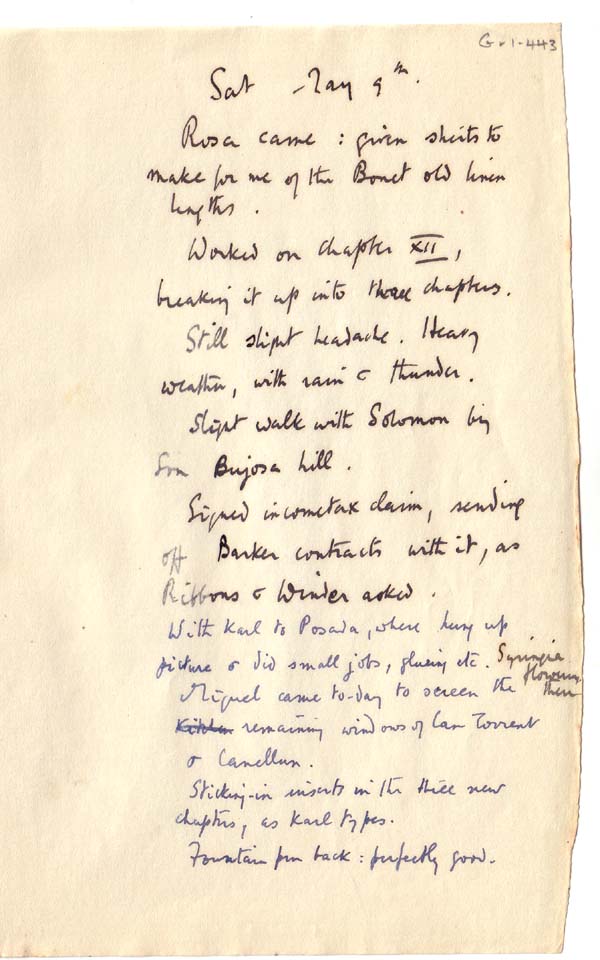 G-1-443
Sat May 9th.
Rosa came : given sheets to
make for me of the Bonet old linen
lengths.
Worked on chapter XII,
breaking it up into three chapters.
Still slight headache. Heavy
weather, with rain & thunder.
Slight walk with Solomon by
Son Bujosa hill.
Signed incometax claim, sending
off Barker contracts with it, as
Ribbons & Winder asked.
With Karl to Posada, where hung up
picture & did small jobs, glueing etc. Syringia
flowering
there
Miguel came to-day to screen the
Kitchen remaining windows of Can Torrent
& Canellun.
Sticking-in inserts in the three new
chapters, as Karl types.
Fountain pen back : perfectly good.